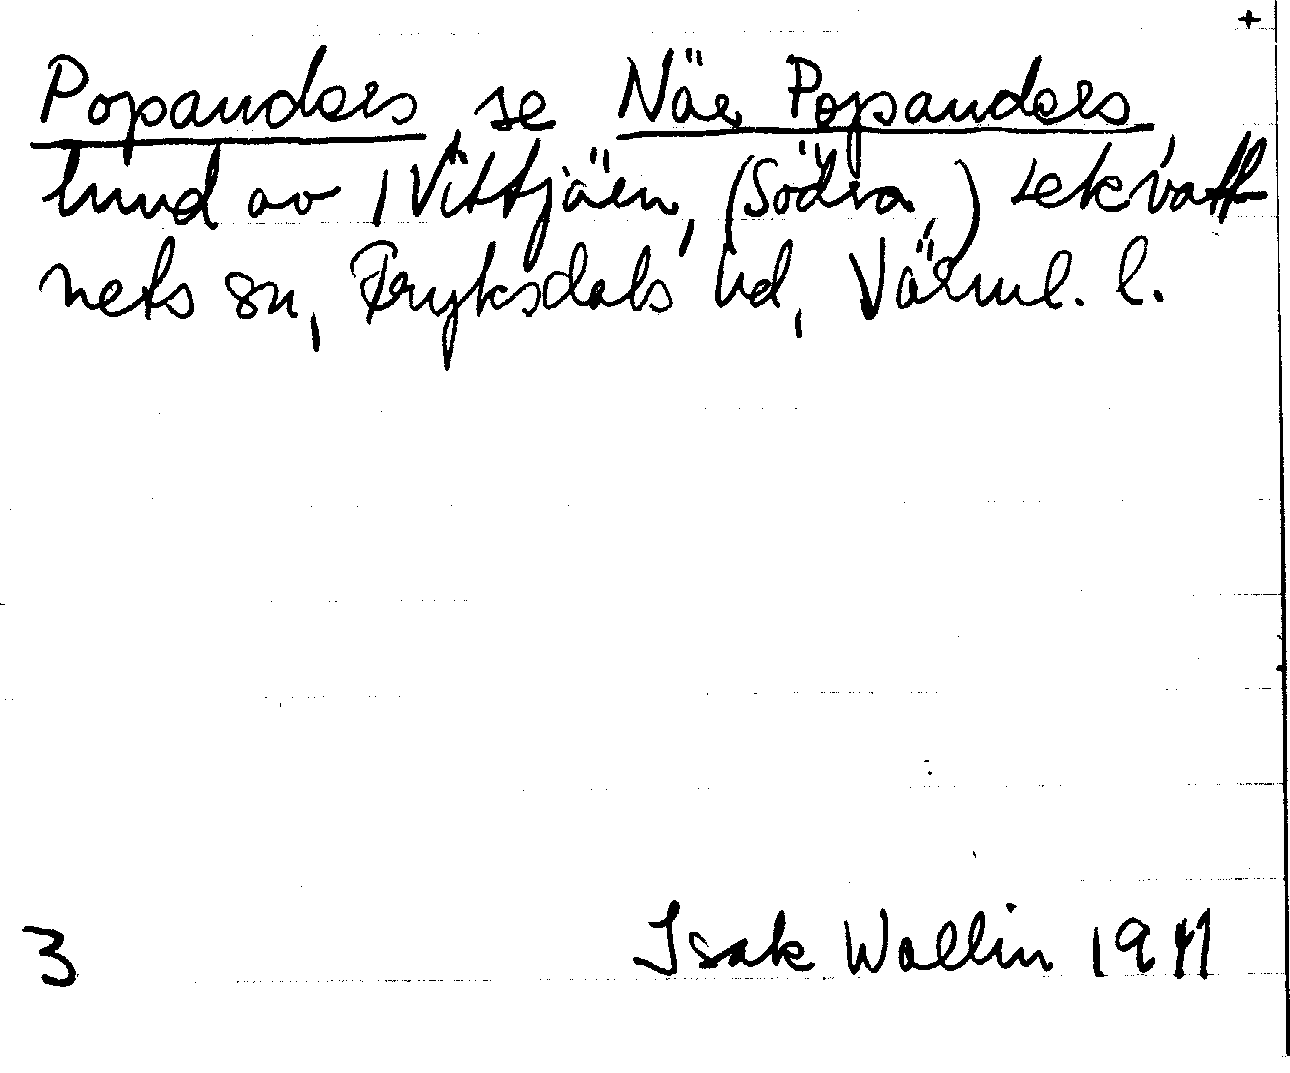 +
Popanders se När Popanders
lund av 1 Vittjärn, (Södra,) Lekvatt-
nets sn, Fryksdals hd, Värml. l.
3 Isak Wallin 1941